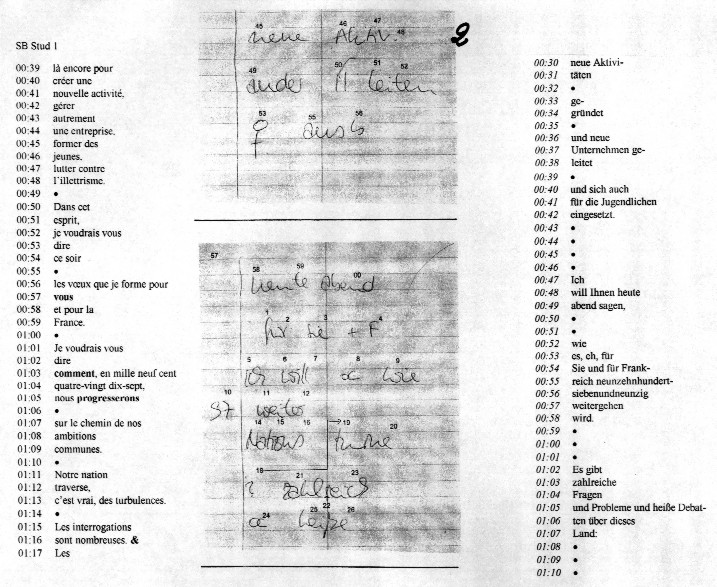 SB Stud 1
00:39 là encore pour
00:40 créer une
00:41 nouvelle activité,
00:42 gérer
00:43 autrement
00:44 une entreprise,
00:45 former des
00:46 jeunes,
00:47 lutter contre
00:48 l'illettrisme.
00:49 •
00:50 Dans cet
00:51 esprit,
00:52 je voudrais vous
00:53 dire
00:54 ce soir
00:55 •
00:56 les vœux que je forme pour
00:57 vous
00:58 et pour la
00:59 France.
01:00 •
01:01 Je voudrais vous
01:02 dire
01:03 comment, en mille neuf cent
01:04 quatre-vingt dix-sept,
01:05 nous progresserons
01:06 •
01:07 sur le chemin de nos
01:08 ambitions
01:09 communes.
01:10 •
01:11 Notre nation
01:12 traverse,
01:13 c'est vrai, des turbulences.
01:14 •
01:15 Les interrogations
01:16 sont nombreuses. &
01:17 Les
2
45 46 47 48
neue Aktiv.
49 50 51 52
ander leiten
53 55 56
57
58 59 00
heute abend
1 2 3 4
für Sie + F
5 6 7 8 9
ich will wie
10 11 12
97 weiter
14 15 16 19 20
Nations
18 21 23
? zahlreich
24 25 22 26
heiße
00:30 neue Aktivi-
00:31 täten
00:32 •
00:33 ge-
00:34 gründet
00:35 •
00:36 und neue
00:37 Unternehmen ge-
00:38 leitet
00:39 •
00:40 und sich auch
00:41 für die Jugendlichen
00:42 eingesetzt.
00:43 •
00:44 •
00:45 •
00:46 •
00:47 Ich
00:48 will Ihnen heute
00:49 abend sagen,
00:50 •
00:51 •
00:52 wie
00:53 es, eh, für
00:54 Sie und für Frank-
00:55 reich neunzehnhundert-
00:56 siebenundneunzig
00:57 weitergehen
00:58 wird.
00:59 •
01:00 •
01:01 •
01:02 Es gibt
01:03 zahlreiche
01:04 Fragen
01:05 und Probleme und heiße Debat-
01:06 ten über dieses
01:07 Land:
01:08 •
01:09 •
01:10 •